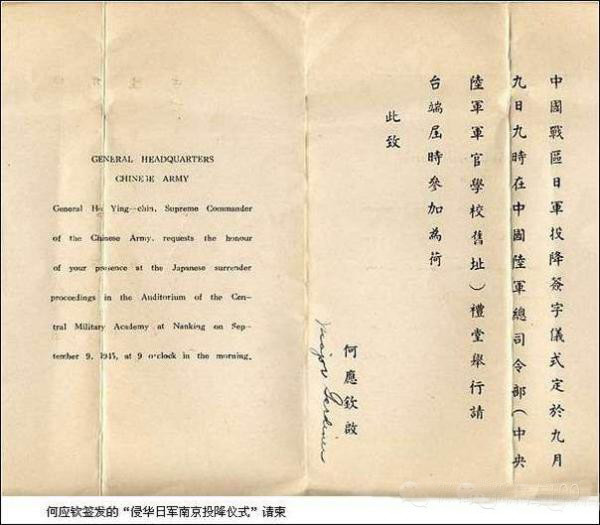 GENERAL HEADQUARTERS
CHINESE ARMY
General Ho Ying—chin, Supreme Commander
of the Chinese Army, requests the honour
of your presence at the Japanese surrender
proceedings in the Auditorium of the Cen-
tral Military Academy at Nanking on Sep-
tember 9, 1945, at 9 o'clock in the morning.
中國戰區日軍投降簽字儀式定於九月
九日九時在中國陸軍總司令部(中央
陸軍軍官學校舊址)禮堂舉行請
台端屆時參加為荷
此致
何應欽啟
Major Gardiner
何应钦签发的“侵华日军南京投降仪式”请柬